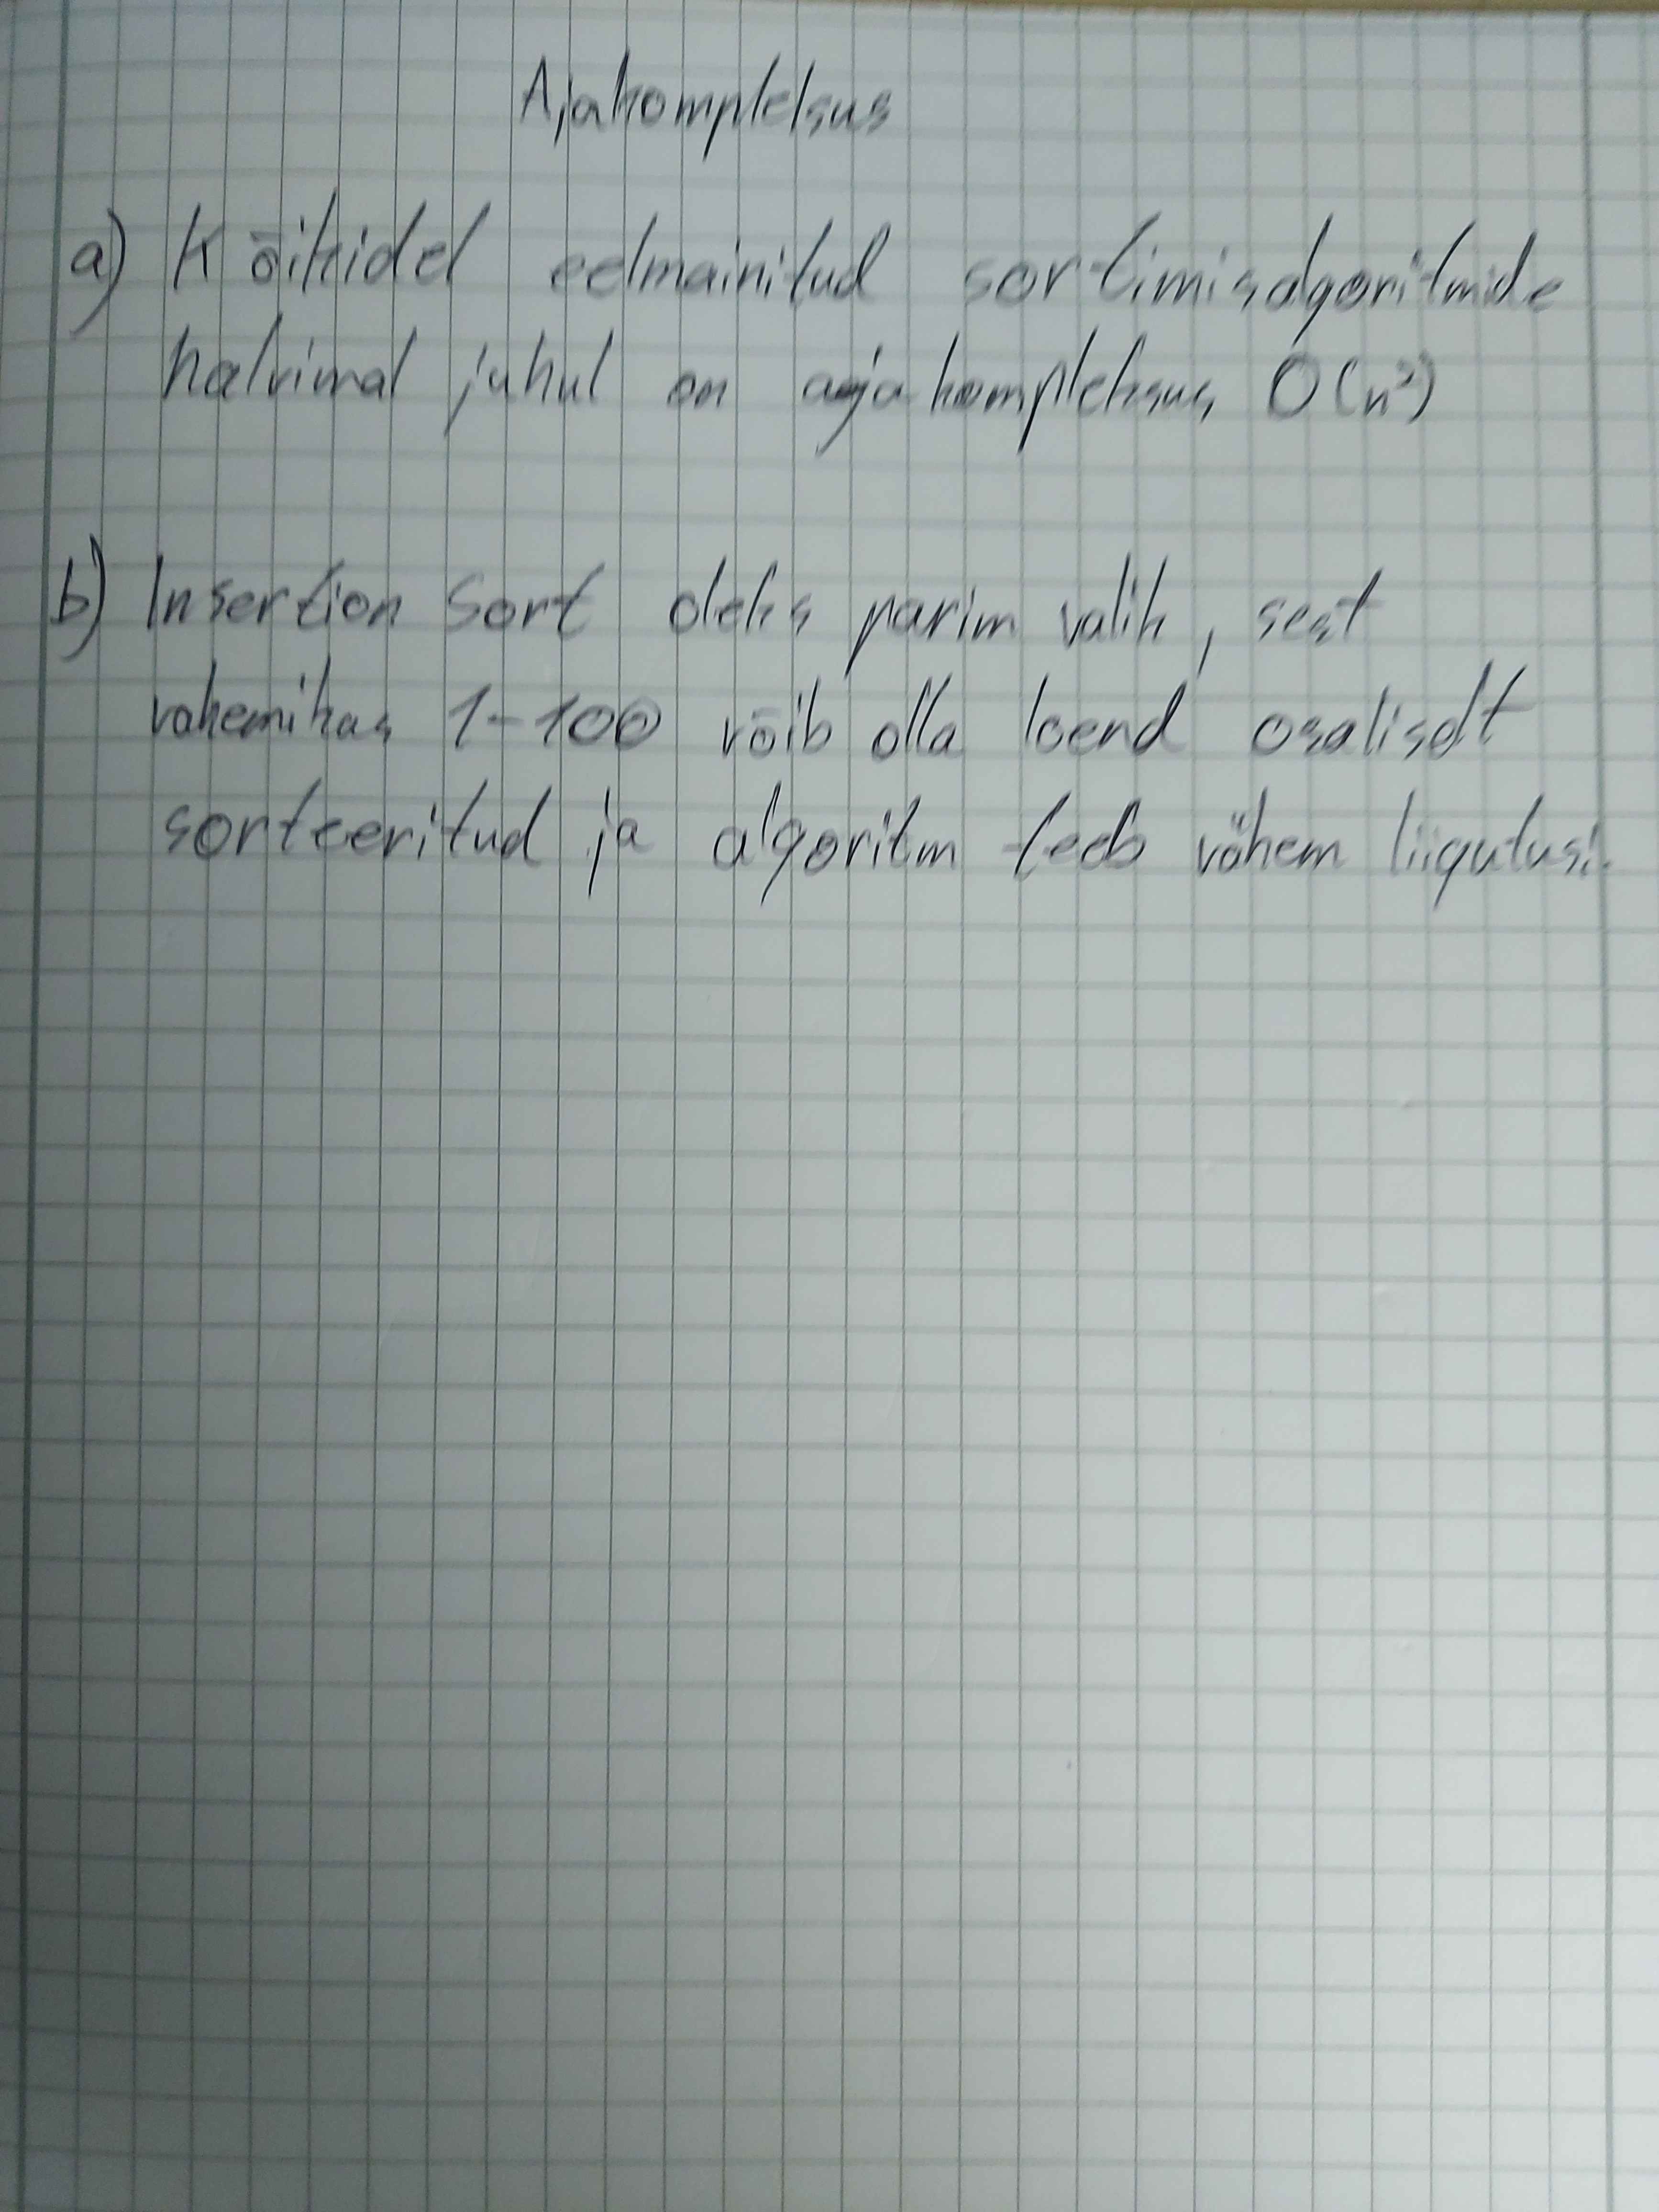 Ajakompleksus
a) Kõikidel eelmainitud sortimisalgoritmide
halvimal juhul on ajakompleksus O(n²)
b) Insertion Sort oleks parim valik, sest
vahemikas 1-100 võib olla loend osaliselt
sorteeritud ja algoritm teeb vähem liigutusi.